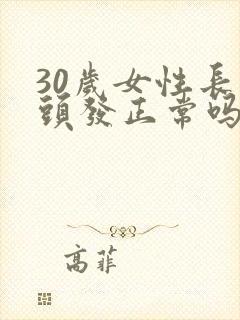 30歲女性長
頭發正常吗
高菲